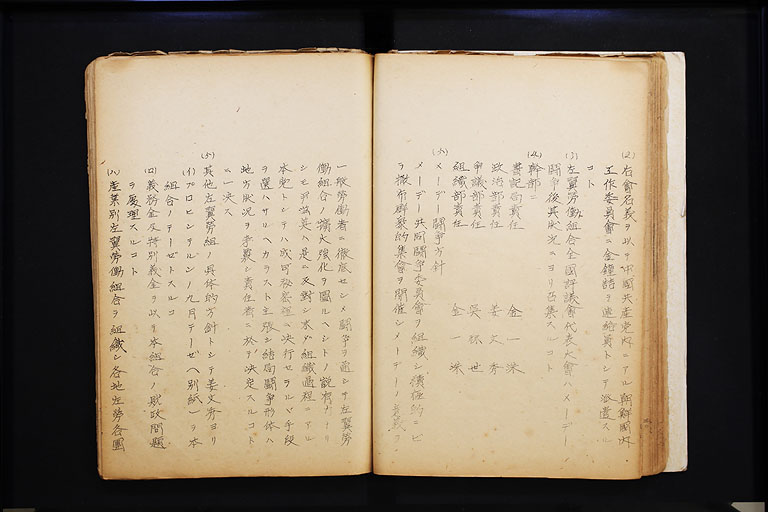 (2) 右會名義ヲ以テ中國共産党内ニアル朝鮮國内
工作委員會ニ金鐘 ヲ連絡員トシテ派遣スル
コト
(3) 左翼労働組合全國評議會代表大會ハメーデー
闘争後其状況ニヨリ召集スルコト
(4) 幹部ニ
書記局責任 金一洙
政治部責任 姜文秀
争議部責任 呉 世
組織部責任 金一洙
メーデー闘争方針
メーデー共同闘争委員會ヲ組織シ積極的ニビ
ラ撒布群衆的集會ヲ開催シメーデーノ意義ヲ
一般労働者ニ徹底セシメ闘争ヲ通シテ左翼労
働組合ノ擴大強化ヲ圖ルヘシトノ説有リタリ
シモ 是ニ反對シ未ダ組織過程ニアル
本 トシテハ或可秘密裡ニ決行セラルベ手段
ヲ選ハサルヘカラスト主張シ結局闘争形体ハ
地方状況ヲ考慮シ責任者ニ於テ決定スルコト
ニ一決ス
(5) 其他左翼労組ノ具体的方針トシテ姜文秀ヨリ
(イ) プロヒンテルンノ九月テーゼヘ別紙一ヲ本
組合ノテーゼトスルコ
(ロ) 義務金及特別義金ヲ以テ本組合ノ財政問題
ヲ處理スルコト
(ハ) 産業別左翼労働組合ヲ組織シ各地左労各團